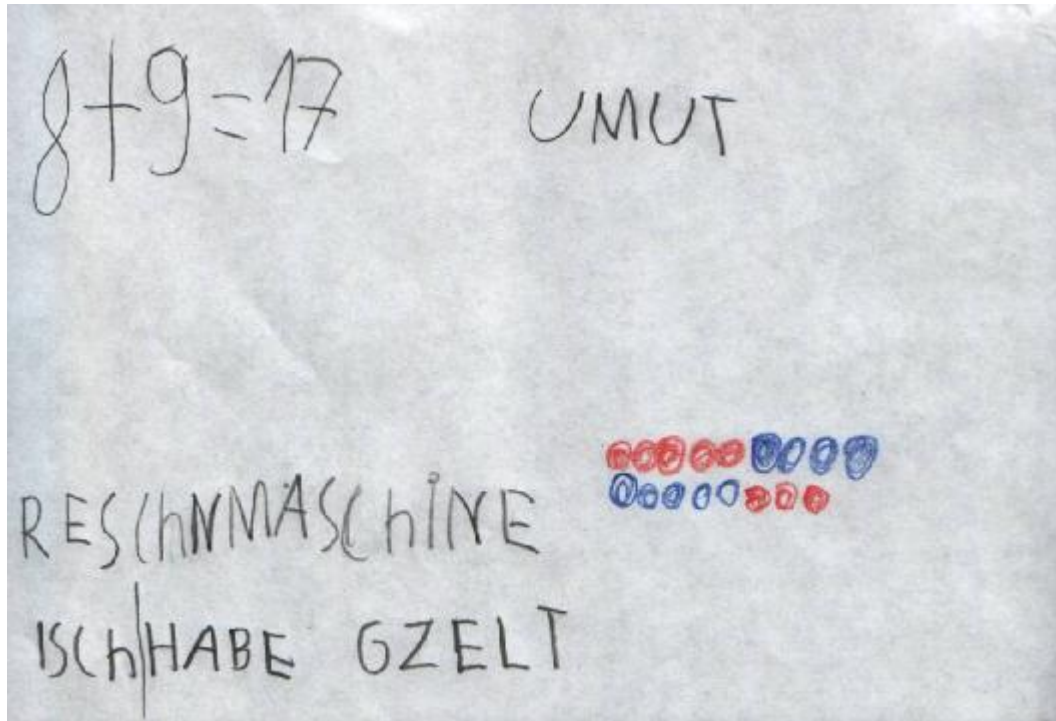 8+9=17
UMUT
RESChNMASChiNE
ISCh|HABE GZELT